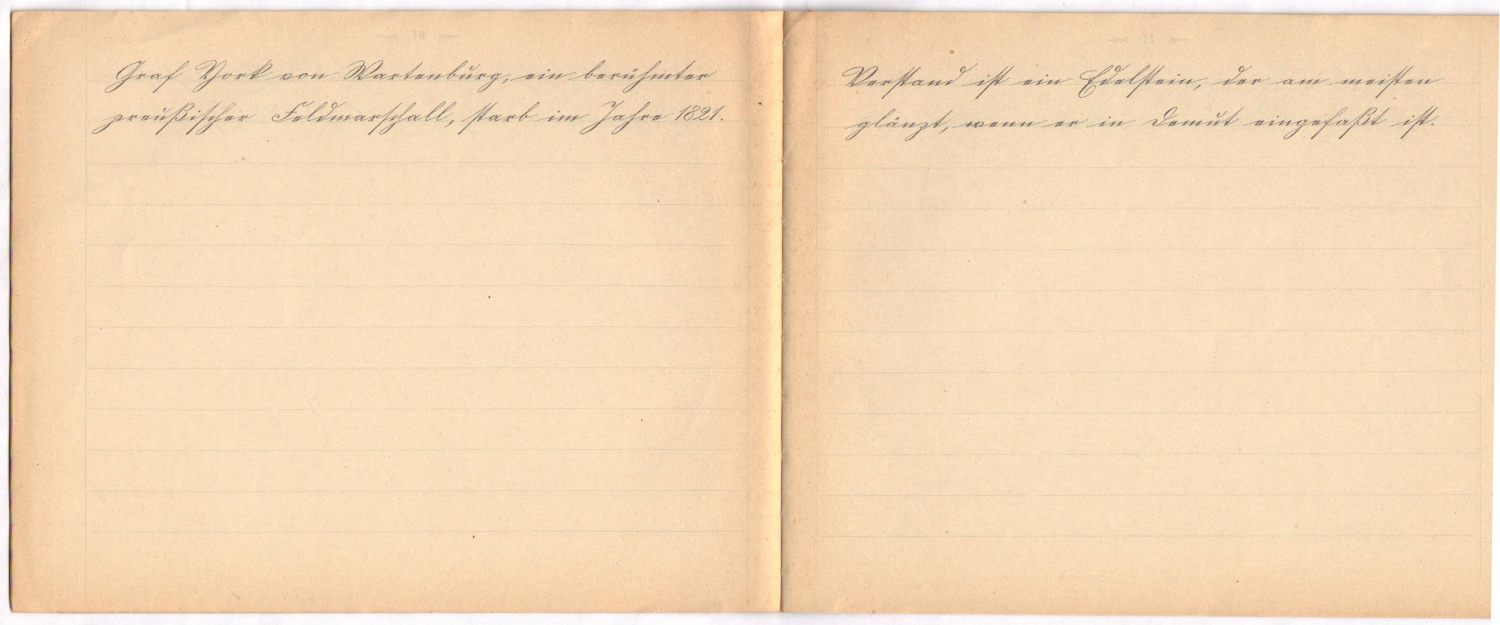 Graf York von Wartenburg, ein berühmter
preußischer Feldmarschall, starb im Jahre 1821.
Verstand ist ein Edelstein, der am meisten
glänzt, wenn er in Demut eingefaßt ist.